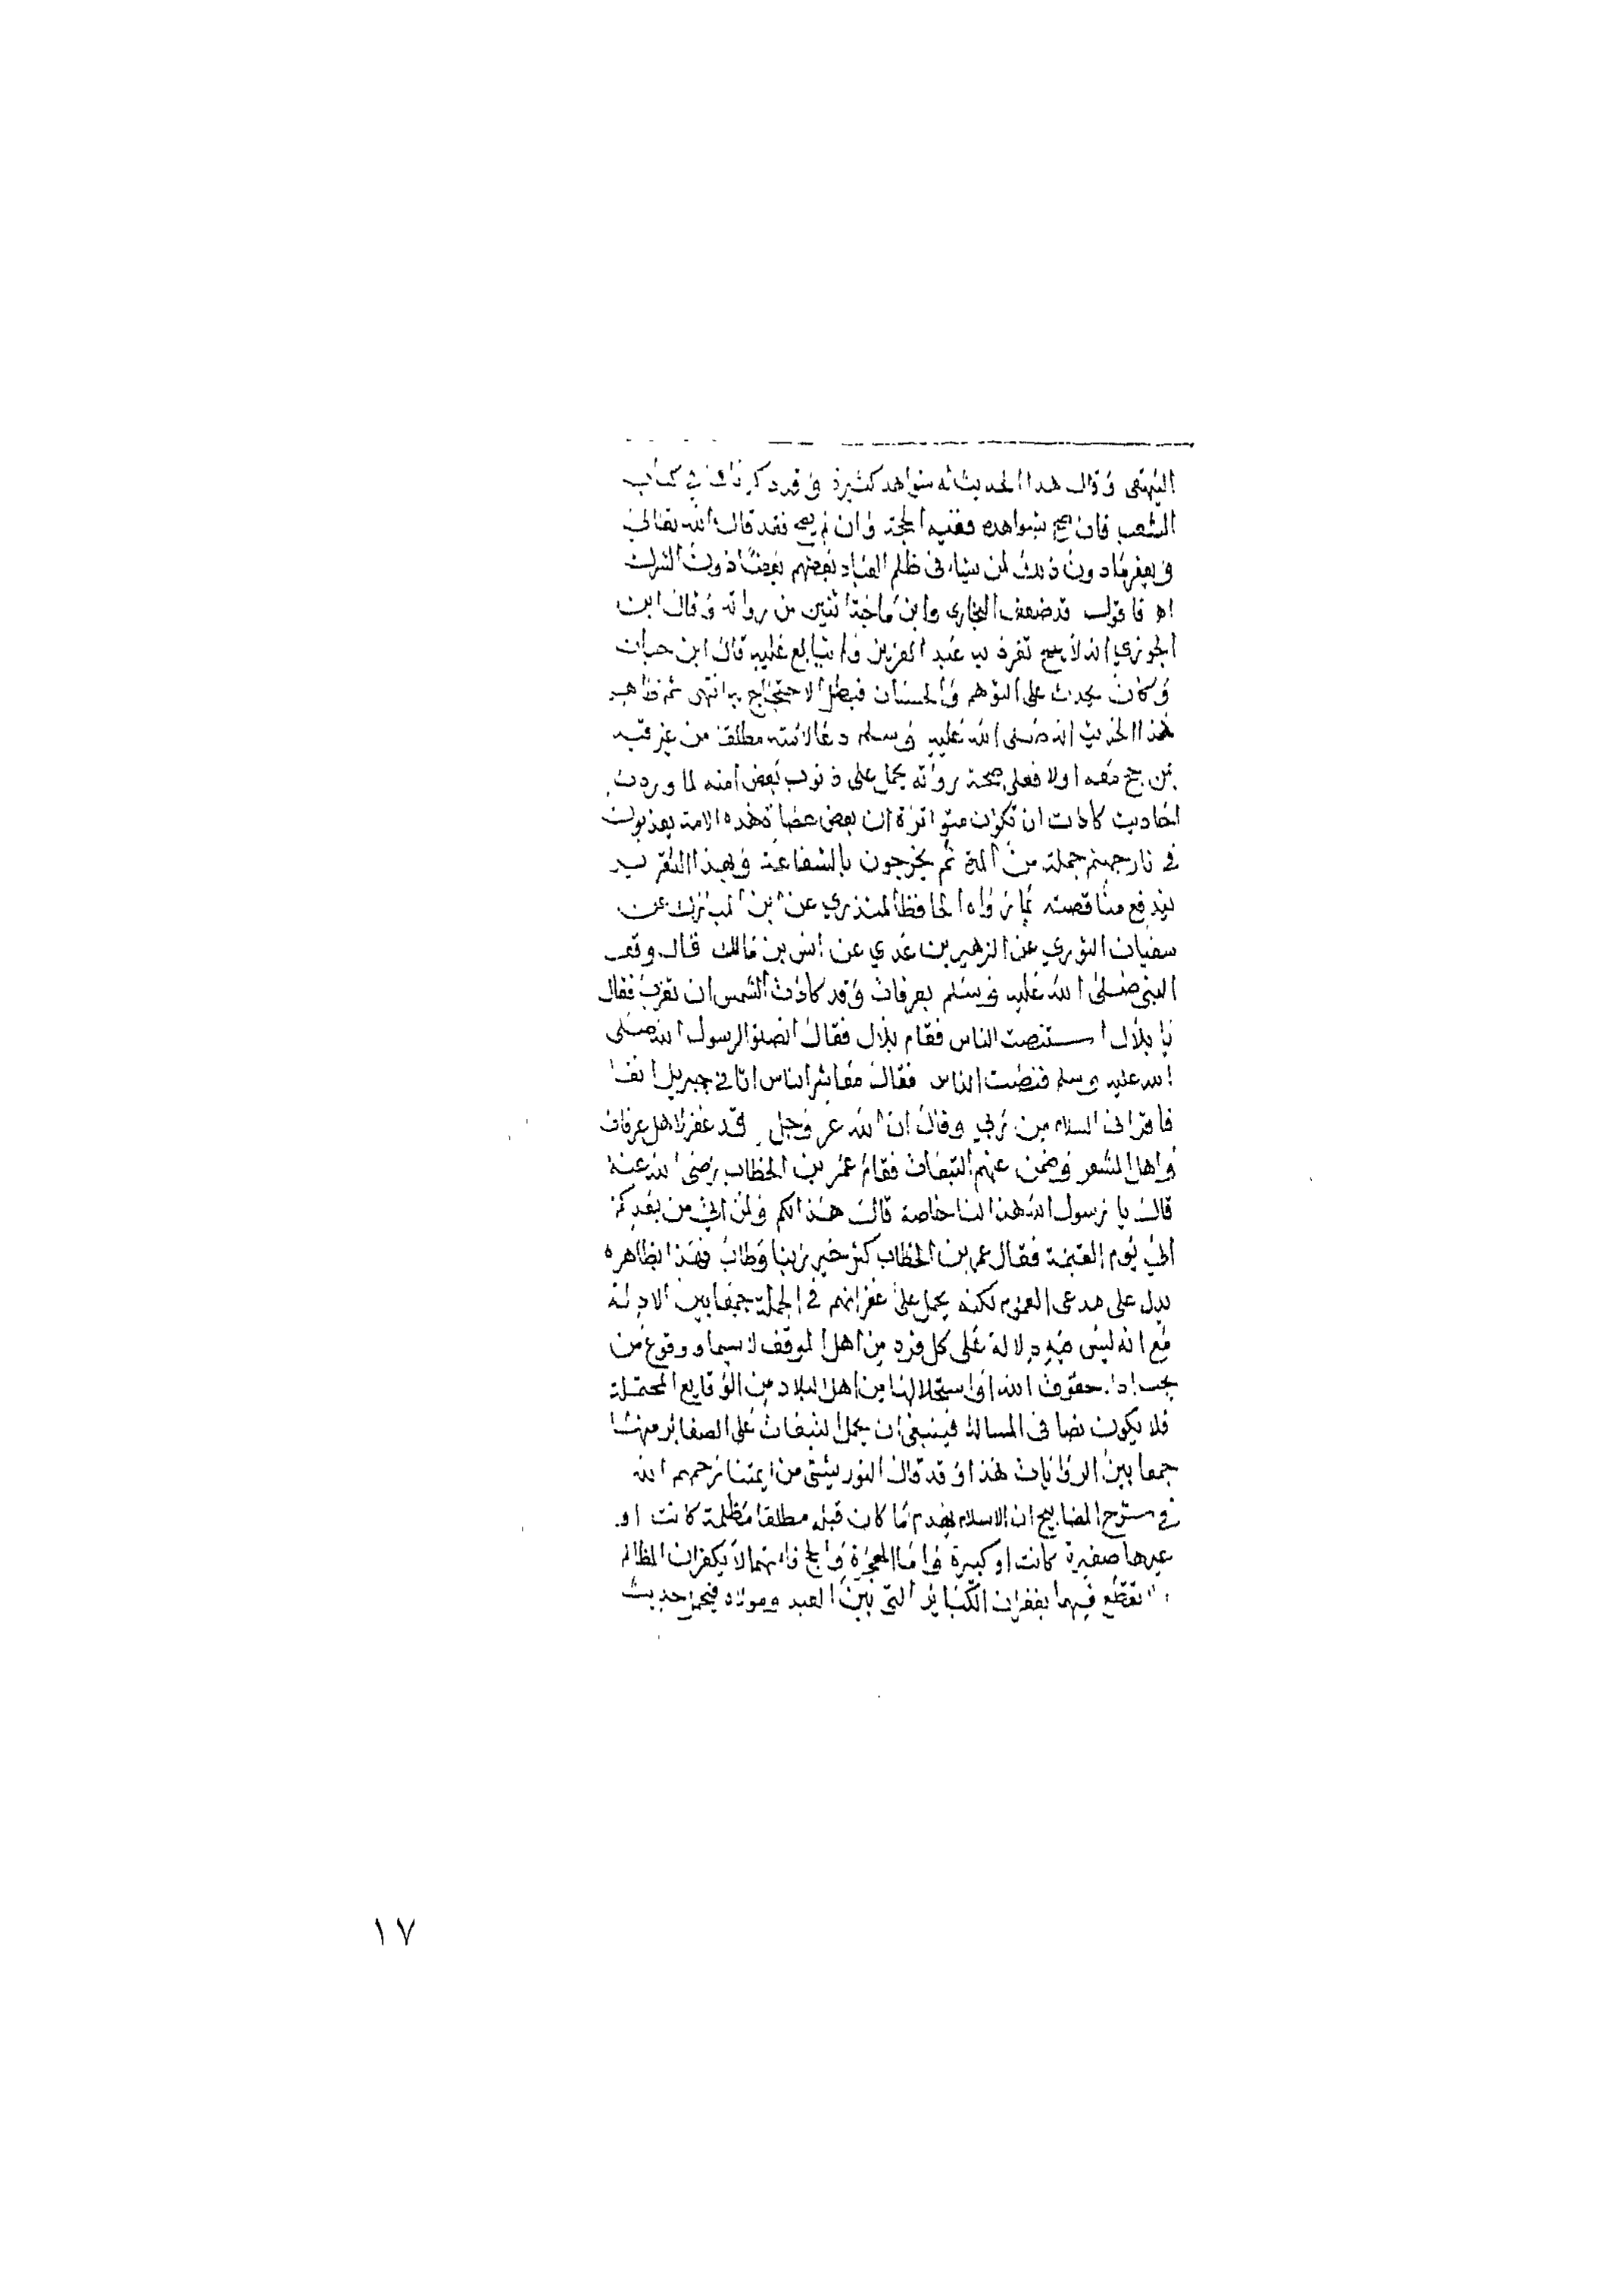 البيهقي وقال هذا الحديث له شواهد كثيرة وقد ذكرناها في كتاب
الشعب فان صح بشواهده ففيه الحجة وان لم يصح فقد قال الله تعالى
ويغفر ما دون ذلك لمن يشاء وظلم العباد بعضهم بعضا دون الشرك
اه فاقول قد ضعف البخاري وابن ماجة اثنين من رواته وقال ابن
الجوزي انه لا يصح تفرد به عبد العزيز ولم يتابع عليه قال ابن حبان
وكان يحدث على التوهم والحسبان فبطل الاحتجاج به انتهى ثم ظاهر
هذا الحديث انه صلى الله عليه وسلم دعا لامته مطلقا من غير قيد
بمن حج معه اولا فعلى صحة رواته يحمل على ذنوب بعض امته لما وردت
احاديث كادت ان تكون متواترة ان بعض عصاة هذه الامة يعذبون
في نار جهنم جملة من ثم يخرجون بالشفاعة وبهذا التقرير
يندفع مناقضته بما رواه الحافظ المنذري عن ابن المبارك عن
سفيان الثوري عن الزهير بن عدي عن انس بن مالك قال وقف
النبي صلى الله عليه وسلم بعرفات وقد كادت الشمس ان تغرب فقال
يا بلال استنصت الناس فقام بلال فقال انصتوا لرسول الله صلى
الله عليه وسلم فنصت الناس فقال معاشر الناس اتاني جبريل انفا
فاقراني السلام من ربي وقال ان الله عز وجل قد غفر لاهل عرفات
واهل المشعر وضمن عنهم التبعات فقام عمر بن الخطاب رضي الله عنه
قال يا رسول الله هذا لنا خاصة قال هذا لكم ولمن اتى من بعدكم
الى يوم القيمة فقال عمر بن الخطاب كثر خير ربنا وطاب فهذا بظاهره
يدل على مدعى العموم لكنه يحمل على غفرانهم في الجملة جمعا بين الادلة
مع انه ليس فيه دلالة على كل فرد من اهل الموقف لا سيما ووقوع من
حقوق الله او استحلالنا من اهل البلاد من الوقايع المحتملة
فلا يكون نصا في المسالة فينبغي ان يحمل التبعات على الصغائر منها
جمعا بين الروايات هذا وقد قال التوربشتي من ايمتنا رحمهم الله
في شرح المصابيح ان الاسلام يهدم ما كان قبله مطلقا مظلمة كانت او
غيرها صغيرة كانت او كبيرة واما الهجرة والحج فانهما لا يكفران المظالم
نقطع فيهما بغفران الكبائر التي بين العبد ومولاه فيحمل حديث
١٧